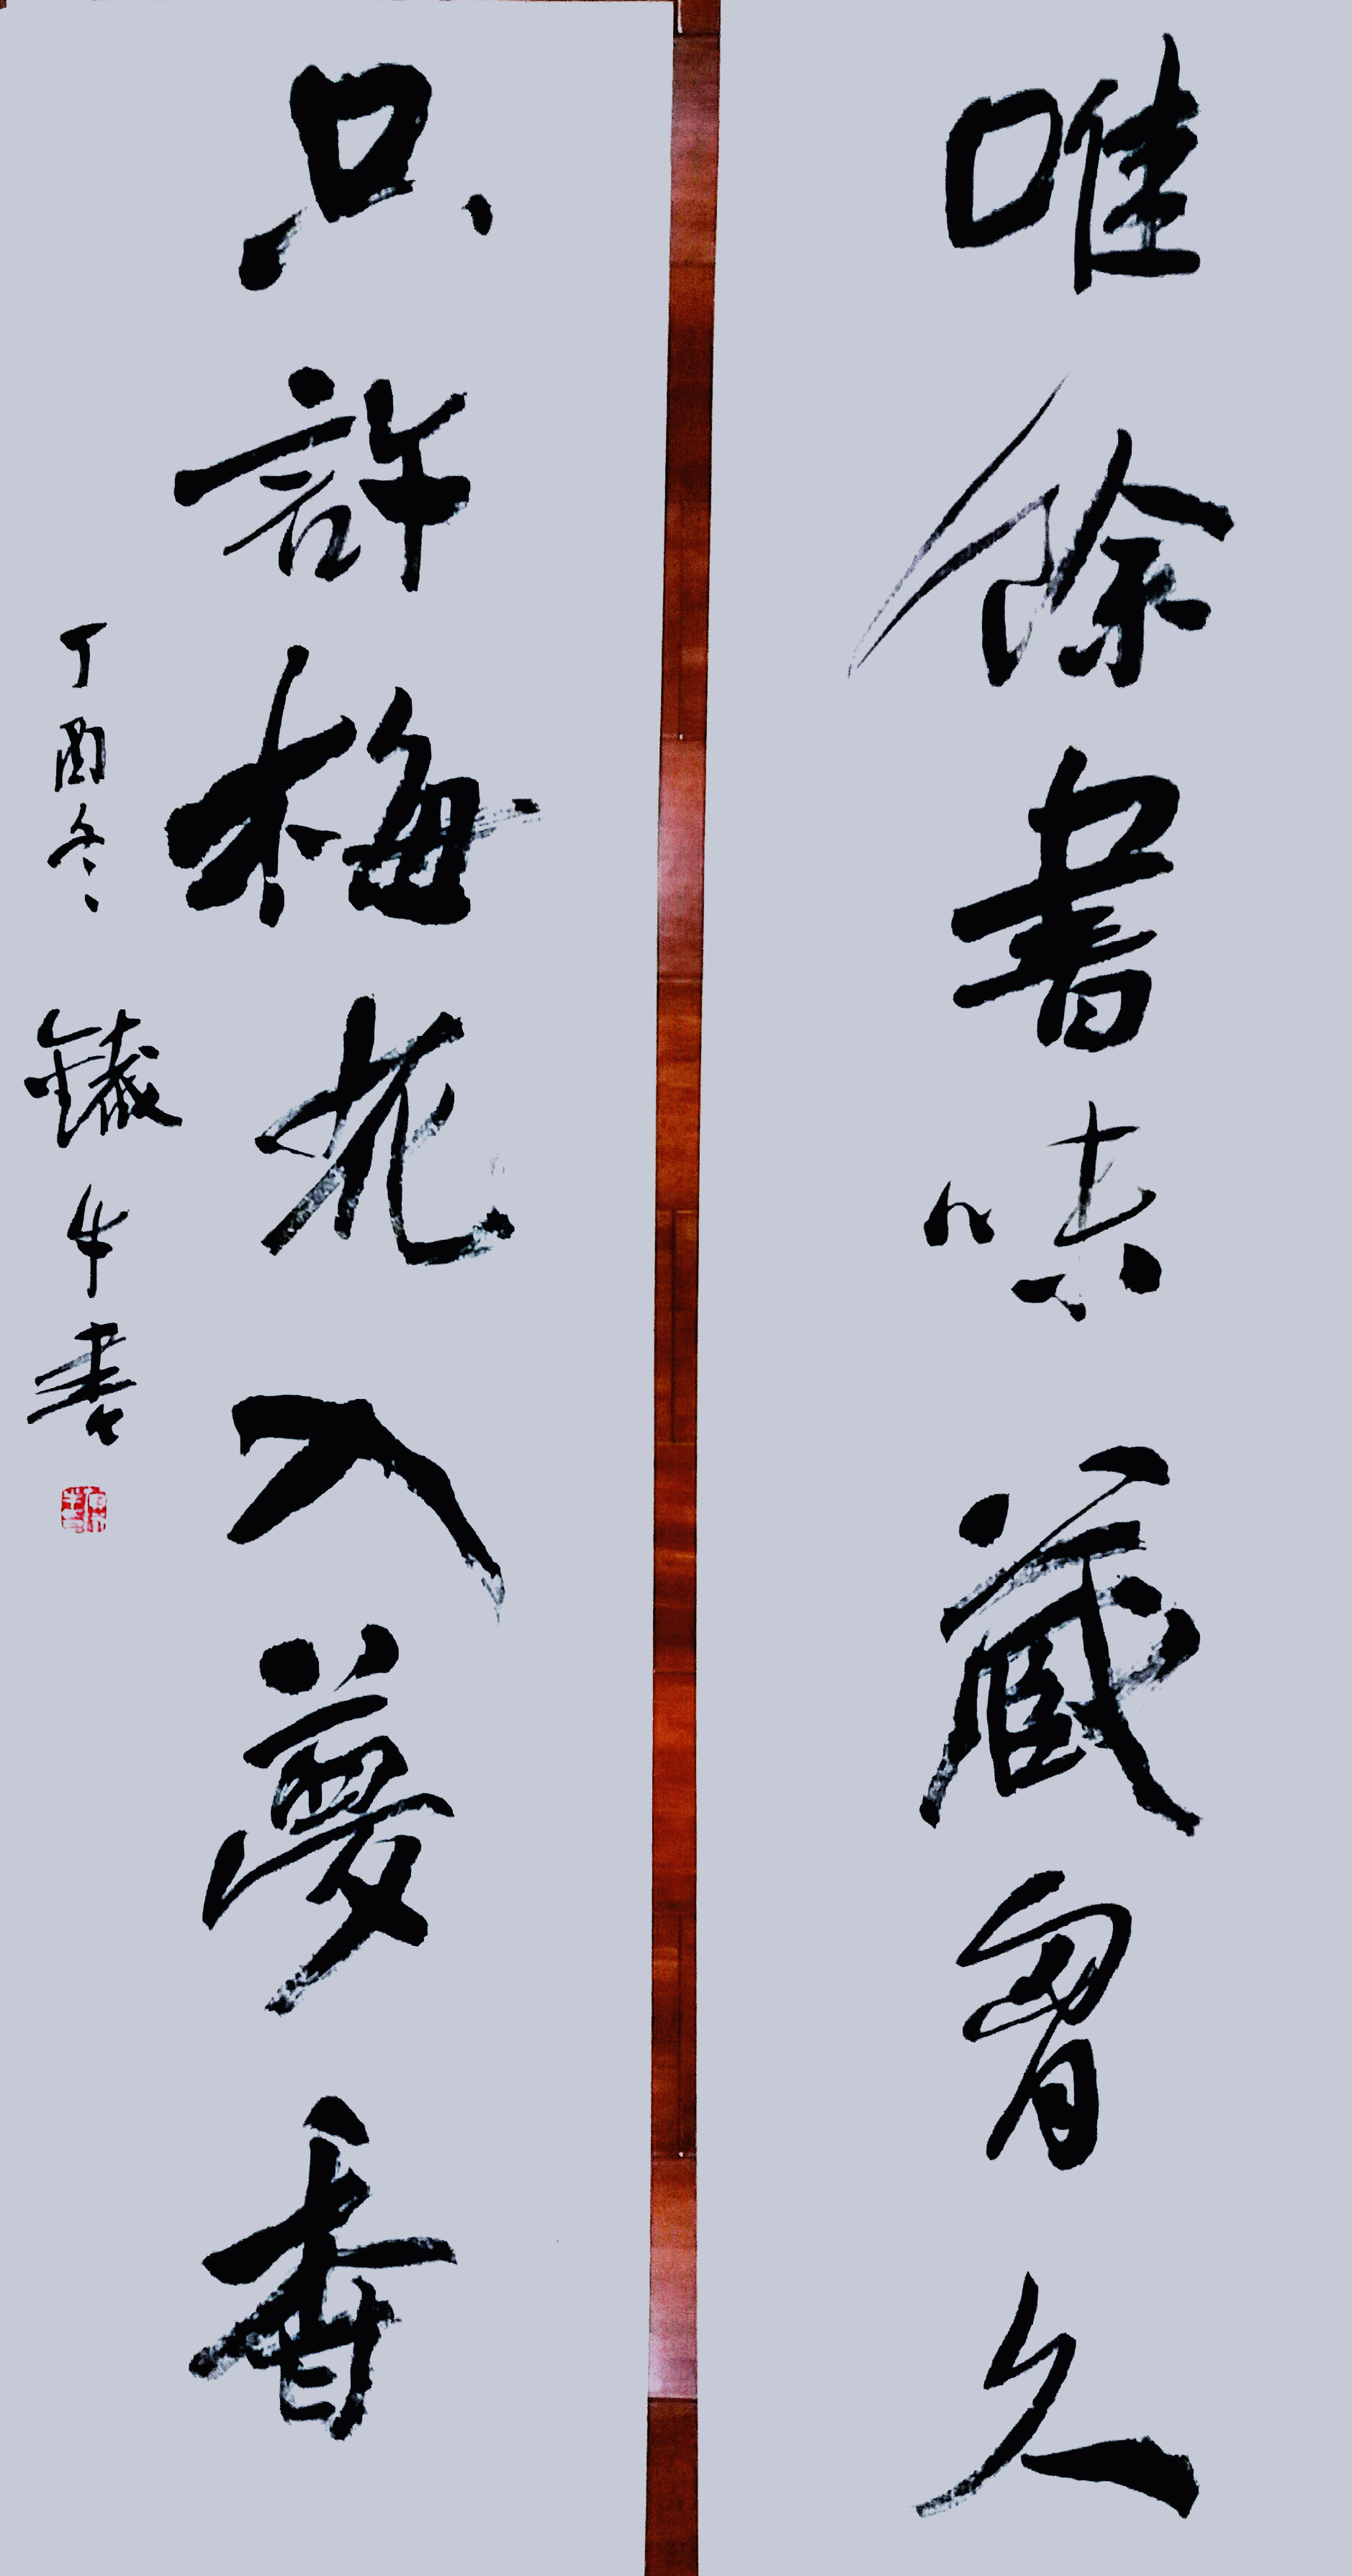 唯餘書味藏胷久
只許梅花入夢香
丁酉冬 鐵牛書